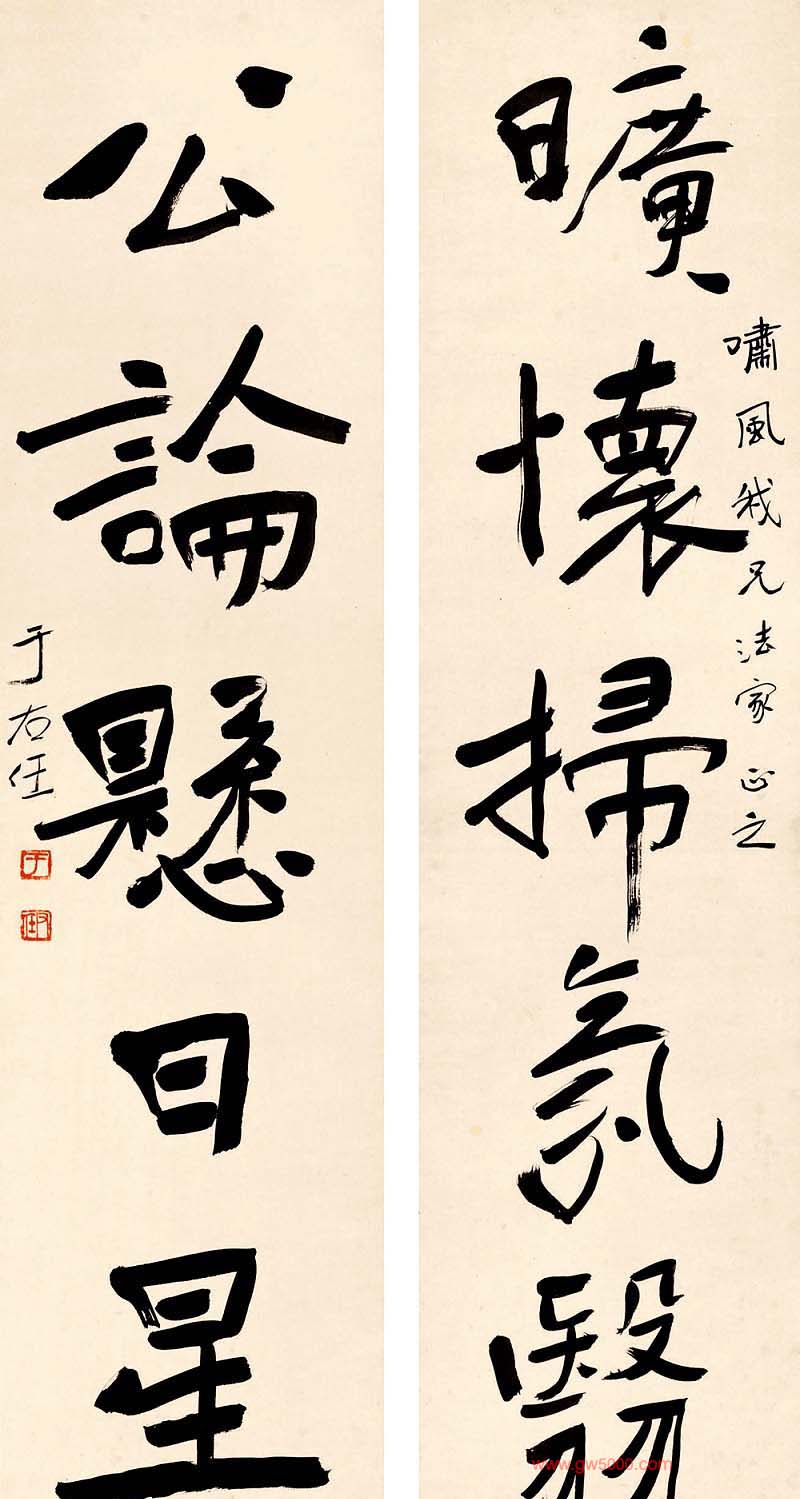 嘯風我兄法家正之
曠懷掃氛翳
公論懸日星
于右任
于
www.gw5000.com